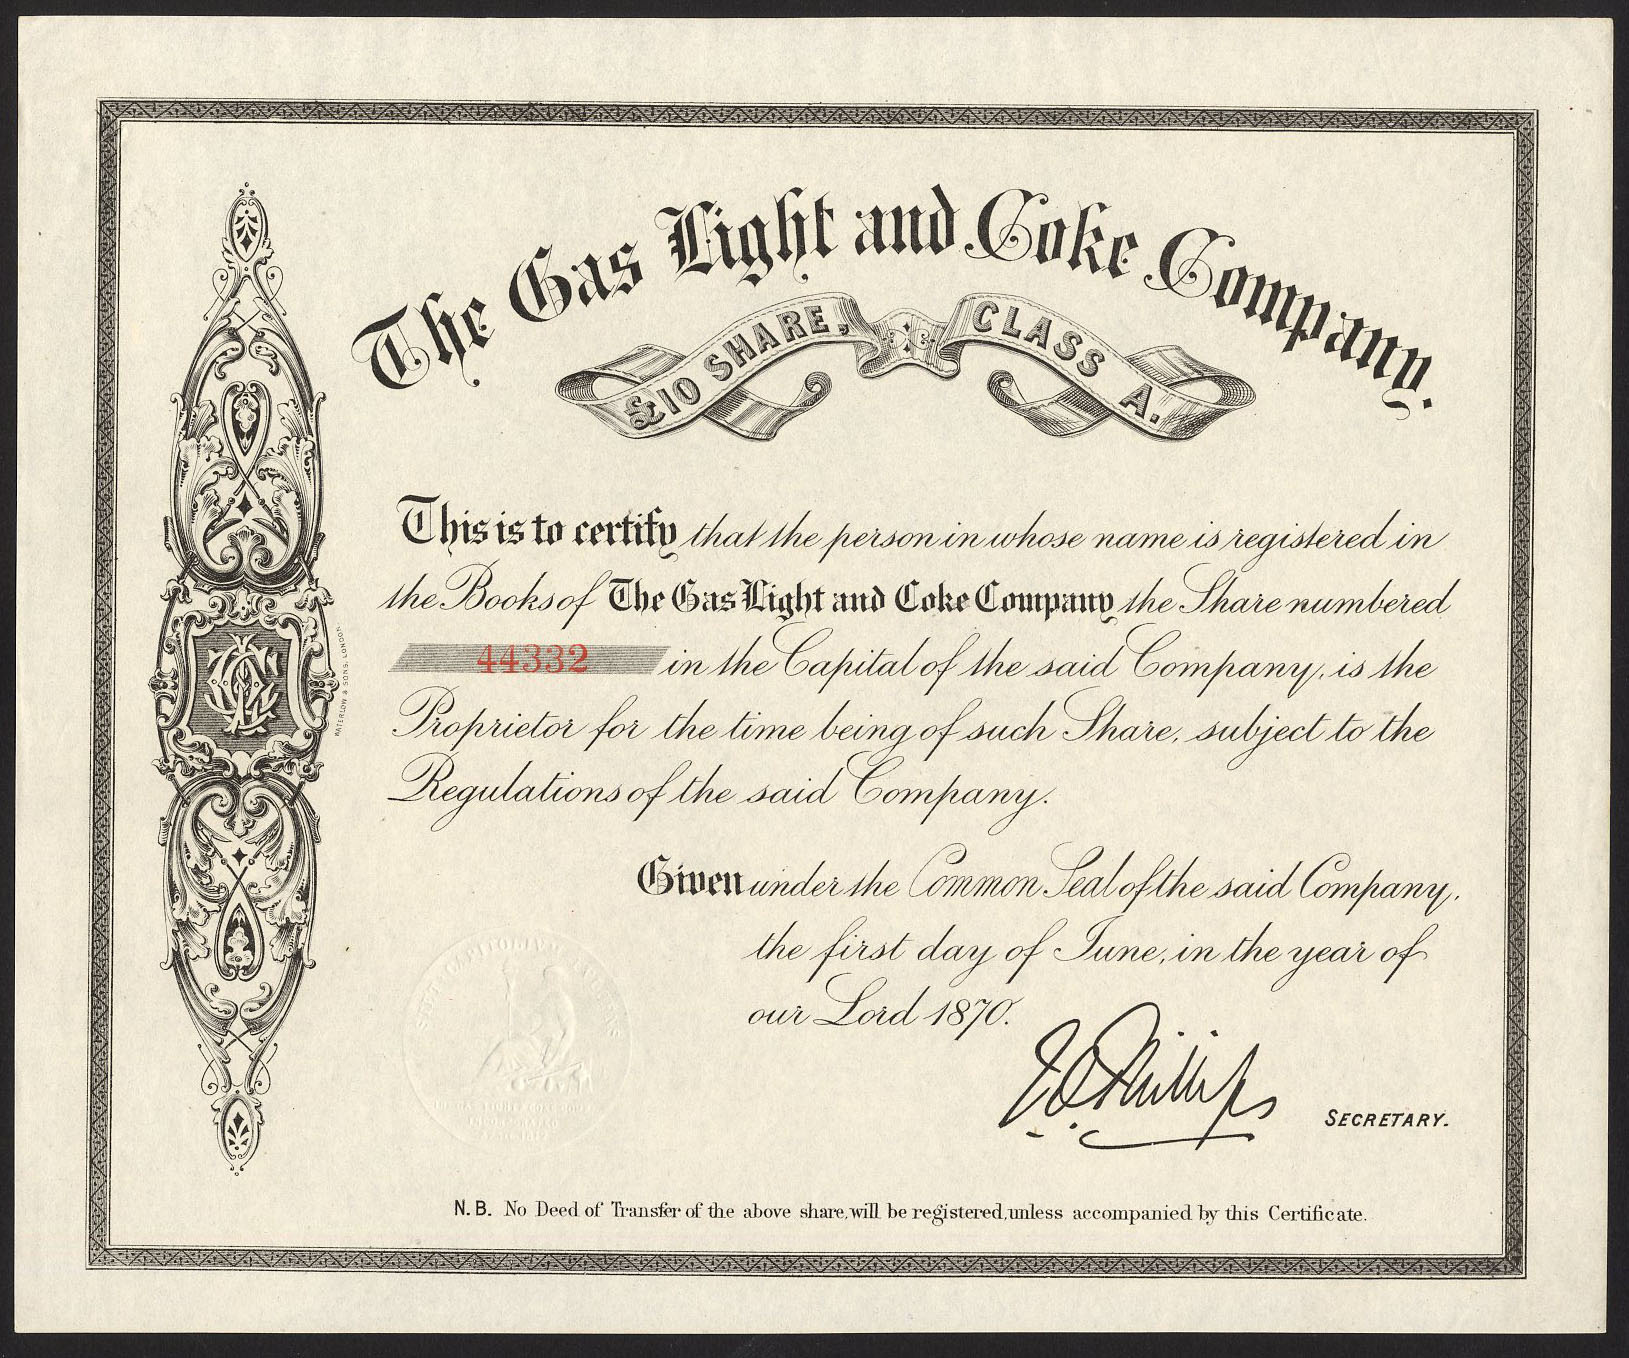 The Gas Light and Coke Company.
£10 SHARE, CLASS A.
This is to certify that the person in whose name is registered in
the Books of The Gas Light and Coke Company the Share numbered
44332 in the Capital of the said Company, is the
Proprietor for the time being of such Share, subject to the
Regulations of the said Company.
WATERLOW & SONS, LONDON.
Given under the Common Seal of the said Company,
the first day of June, in the year of
our Lord 1870.
Phillips
SECRETARY.
N.B. No Deed of Transfer of the above share, will be registered, unless accompanied by this Certificate.